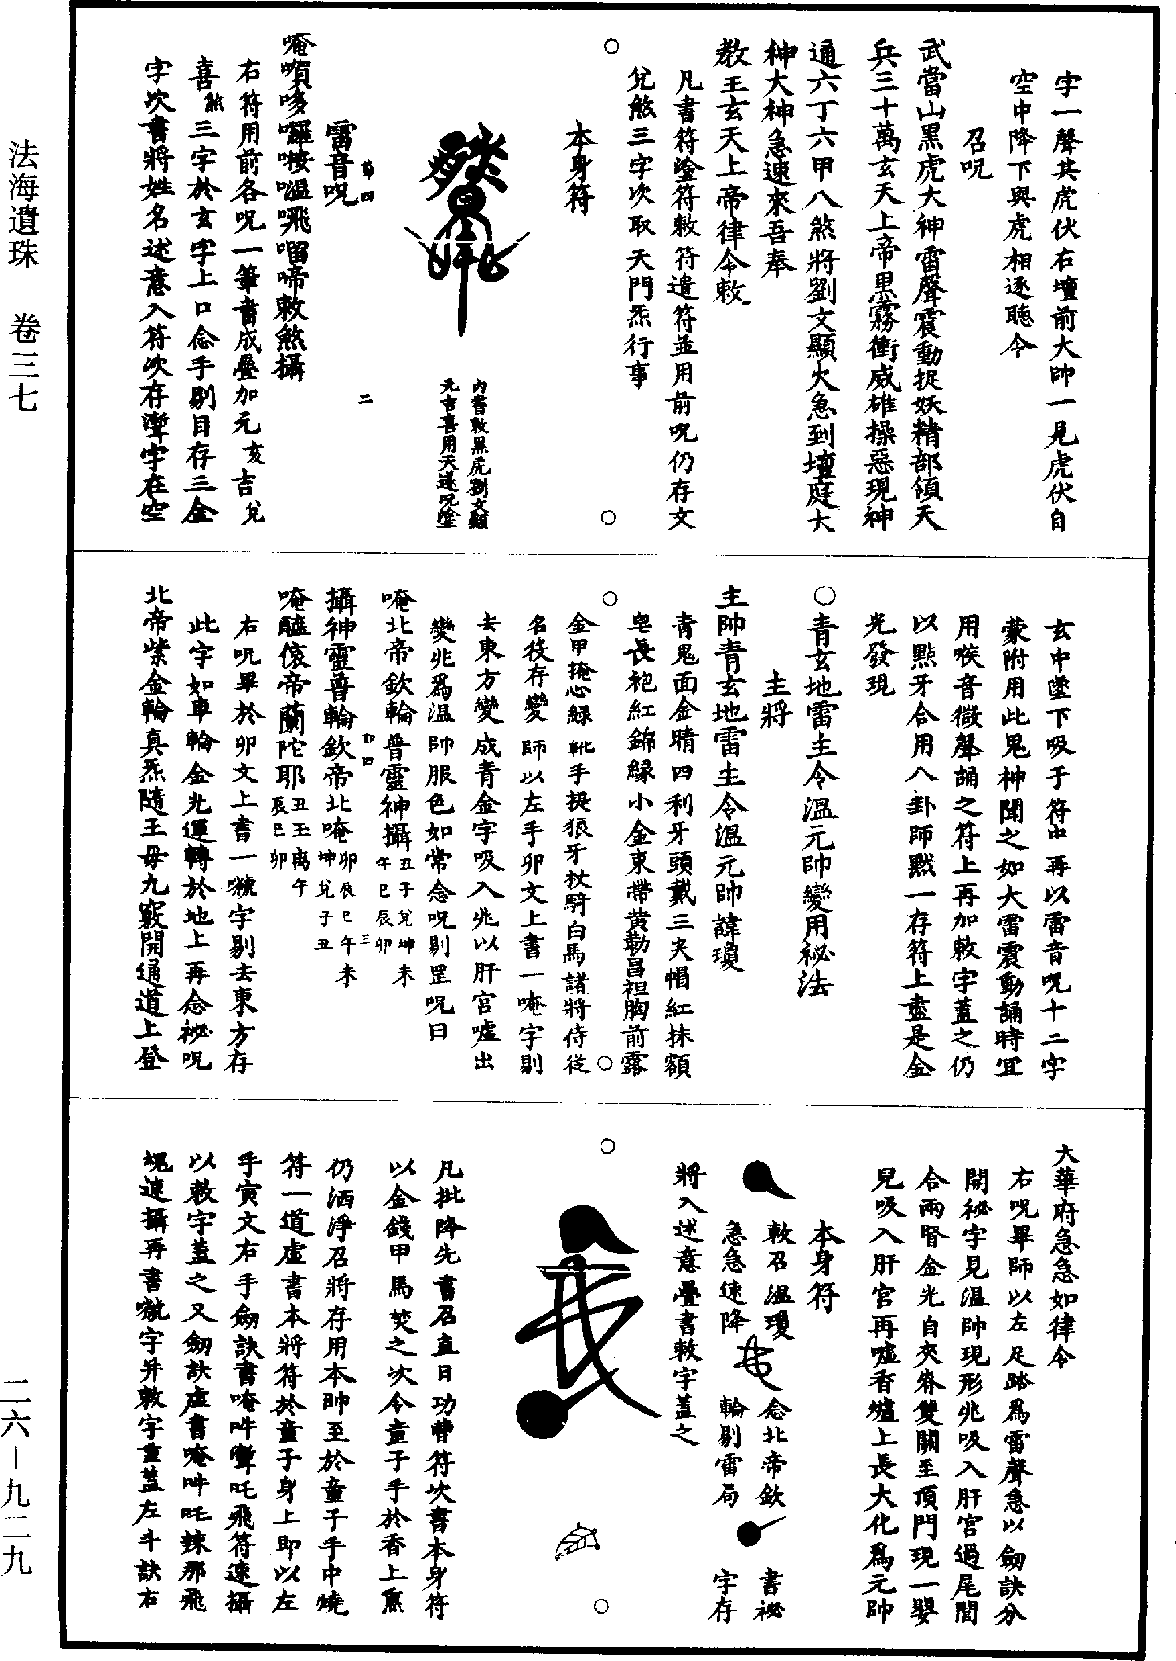 法海遺珠　卷三七
二六—九二九
字一聲其虎伏右壇前大帥一見虎伏自
空中降下與虎相逐聽令
召呪
武當山黑虎大神雷聲震動捉妖精部領天
兵三十萬玄天上帝黑霧衝威雄操惡現神
通六丁六甲八煞將劉文顯火急到壇庭大
神大神急速來吾奉
教主玄天上帝律令敕
凡書符塗符敕符遣符並用前呪仍存文
兌煞三字次取天門炁行事
本身符
內書敕黑虎劉文顯
元吉喜用天蓬呪塗
雷音呪
唵嚬哆囉
飛
啼敕煞攝
右符用前各呪一筆書成疊加元亥吉兌
喜煞三字於玄字上口念手剔目存三金
字次書將姓名述意入符次存魙字在空
玄中墜下吸于符中再以雷音呪十二字
蒙附用此鬼神聞之如大雷震動誦時宜
用喉音微聲誦之符上再加敕字蓋之仍
以點牙合用八卦師默一存符上盡是金
光發現
○青玄地雷主令溫元帥變用秘法
主將
主帥青玄地雷主令溫元帥諱瓊
青鬼面金睛四利牙頭戴三尖帽紅抹額
皂長袍紅錦緣小金束帶黃勒昌袒胸前露
金甲掩心綠靴手提狼牙杖騎白馬諸將侍從
名役存變師以左手卯文上書一唵字剔
去東方變成青金字吸入兆以肝宮噓出
變兆為溫帥服色如常念呪剔罡呪曰
唵北帝欽輪普靈神攝丑子兌坤未午巳辰卯
攝神靈普輪欽帝北唵卯辰巳午未坤兌子丑
唵
帝蘭陀耶丑玉离午辰巳卯
右呪畢於卯文上書一
字剔去東方存
此字如車輪金光運轉於地上再念祕呪
北帝紫金輪真炁隨王母九竅開通道上登
大華府急急如律令
右呪畢師以左足踏為雷聲急以劍訣分
開秘字見溫帥現形兆吸入肝宮過尾閭
合兩腎金光自夾脊雙關至頂門現一嬰
兒吸入肝宮再噓香爐上長大化為元帥
本身符
敕召溫瓊　念北帝欽　書祕
急急速降　輪剔雷局　字存
將入述意疊書敕字蓋之
凡批降先書召直日功曹符次書本身符
以金錢甲馬焚之次令童子手於香上熏
仍洒淨召將存用本帥至於童子手中燒
符一道虛書本將符於童子身上即以左
手寅文右手劍訣書唵吽
吒飛符速攝
以敕字蓋之又劍訣虛書唵吽吒辣那飛
魂速攝再書
字并敕字重蓋左斗訣右